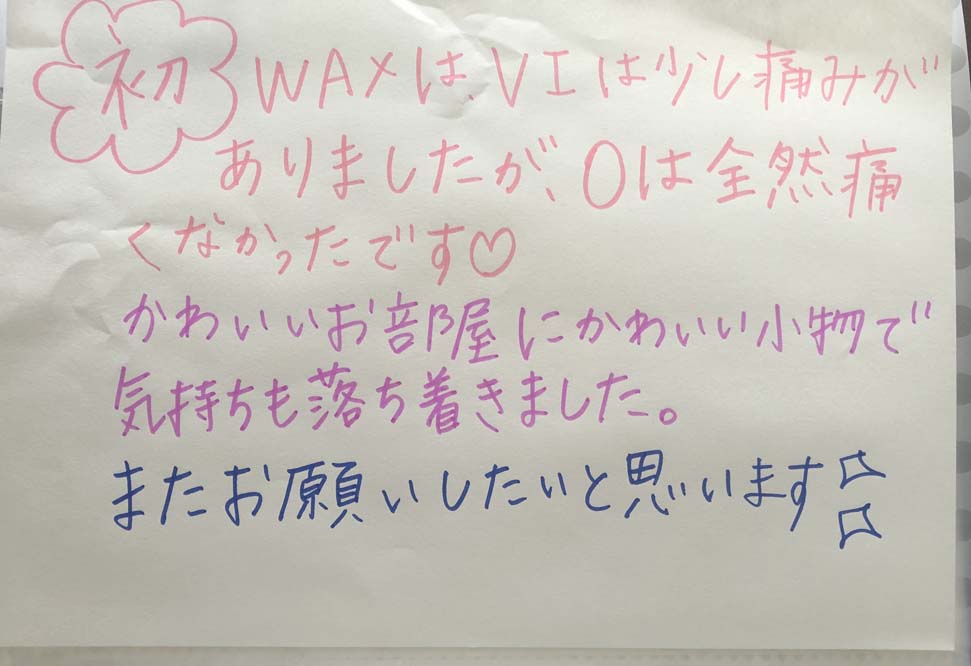 初 WAXは、VIは少し痛みが
ありましたが、Oは全然痛
くなかったです♡
かわいいお部屋にかわいい小物で
気持ちも落ち着きました。
またお願いしたいと思います